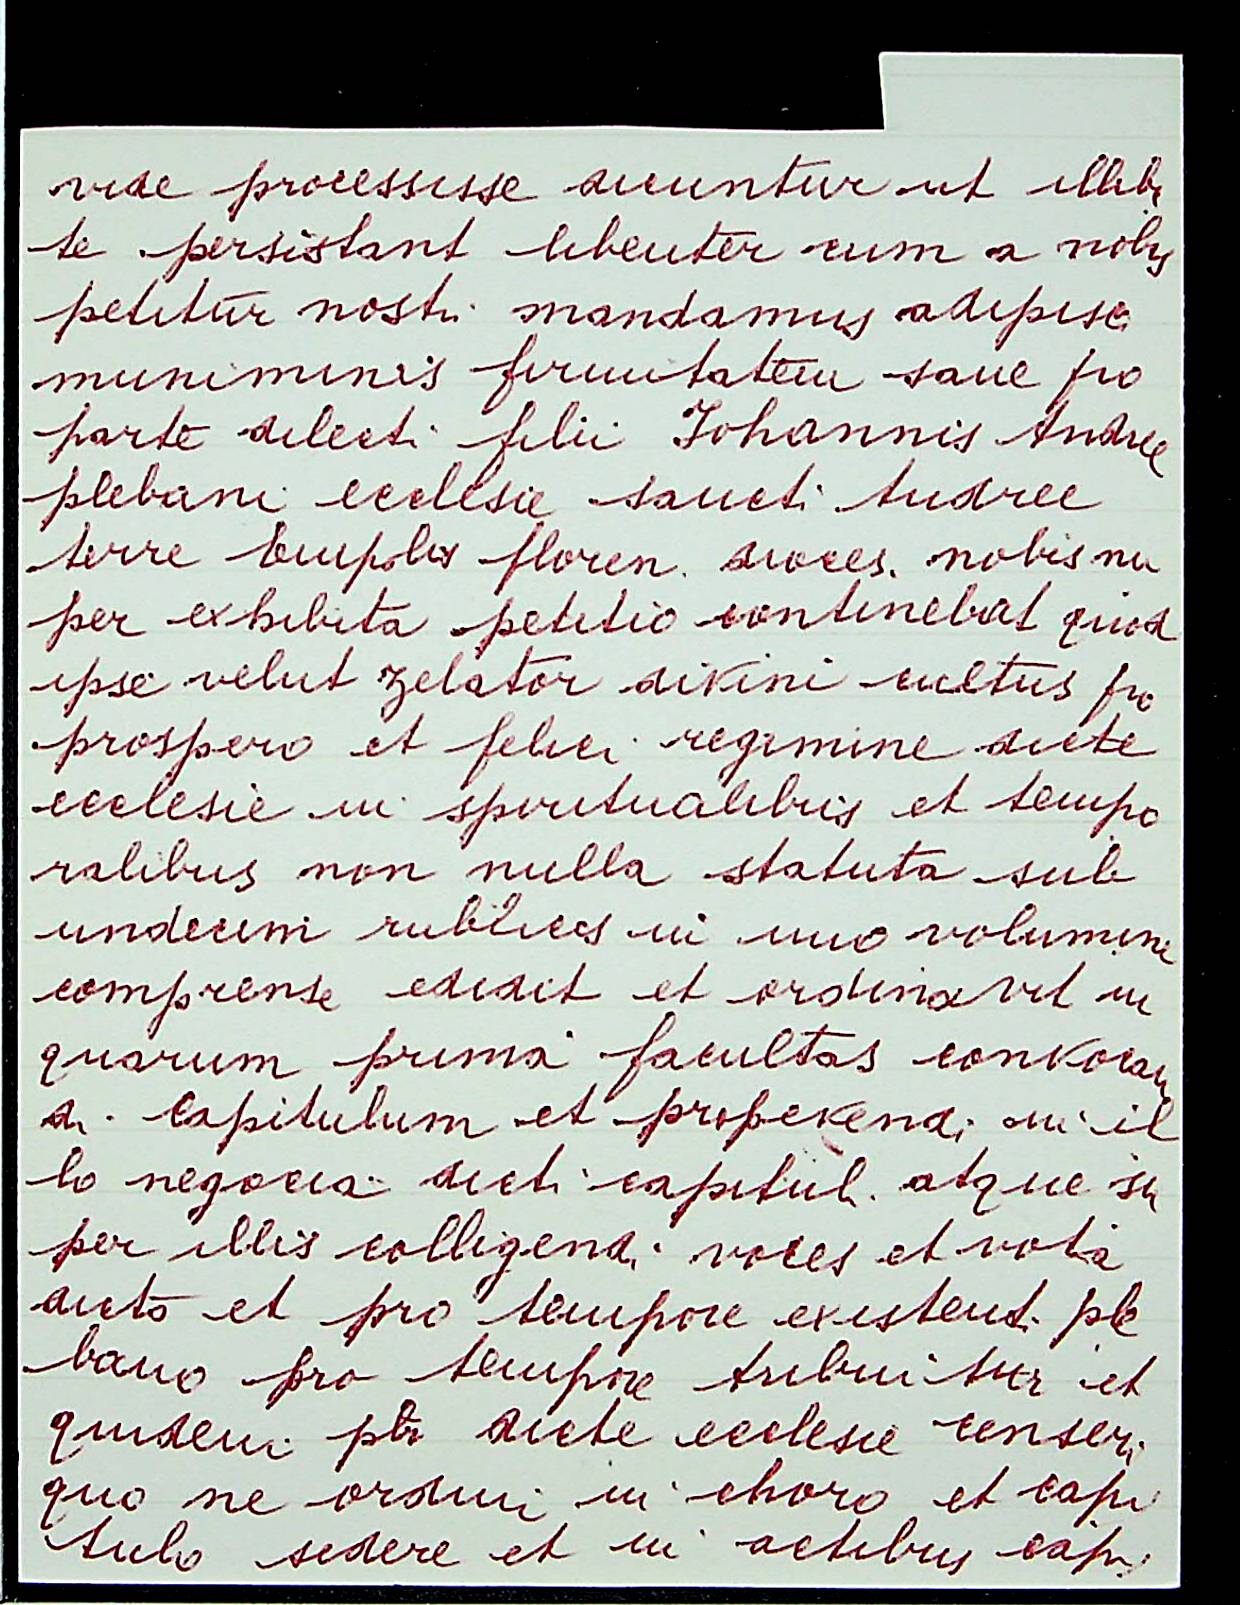 vide processisse dicuntur ut illiba
te persistant libenter cum a nobis
petitur nostri mandamus adipisci
muniminis firmitatem sane pro
parte dilecti filii Johannis Andree
plebani ecclesie sancti Andree
terre Empoli floren. dioces. nobis nu
per exhibita petitio continebat quod
ipse velut zelator divini cultus pro
prospero et felici regimine dicte
ecclesie in spiritualibus et tempo
ralibus non nulla statuta sub
undecim rubrices in uno volumine
comprense edidit et ordinavit in
quarum prima facultas convocan
di capitulum et proponendi in il
lo negocia dicti capituli atque su
per illis colligendi voces et vota
dicto et pro tempore existenti ple
bano pro tempore tribuitur et
quidem pbr dicte ecclesie censeri
quo ne ordini in choro et capi
tulo sedere et in actibus capi